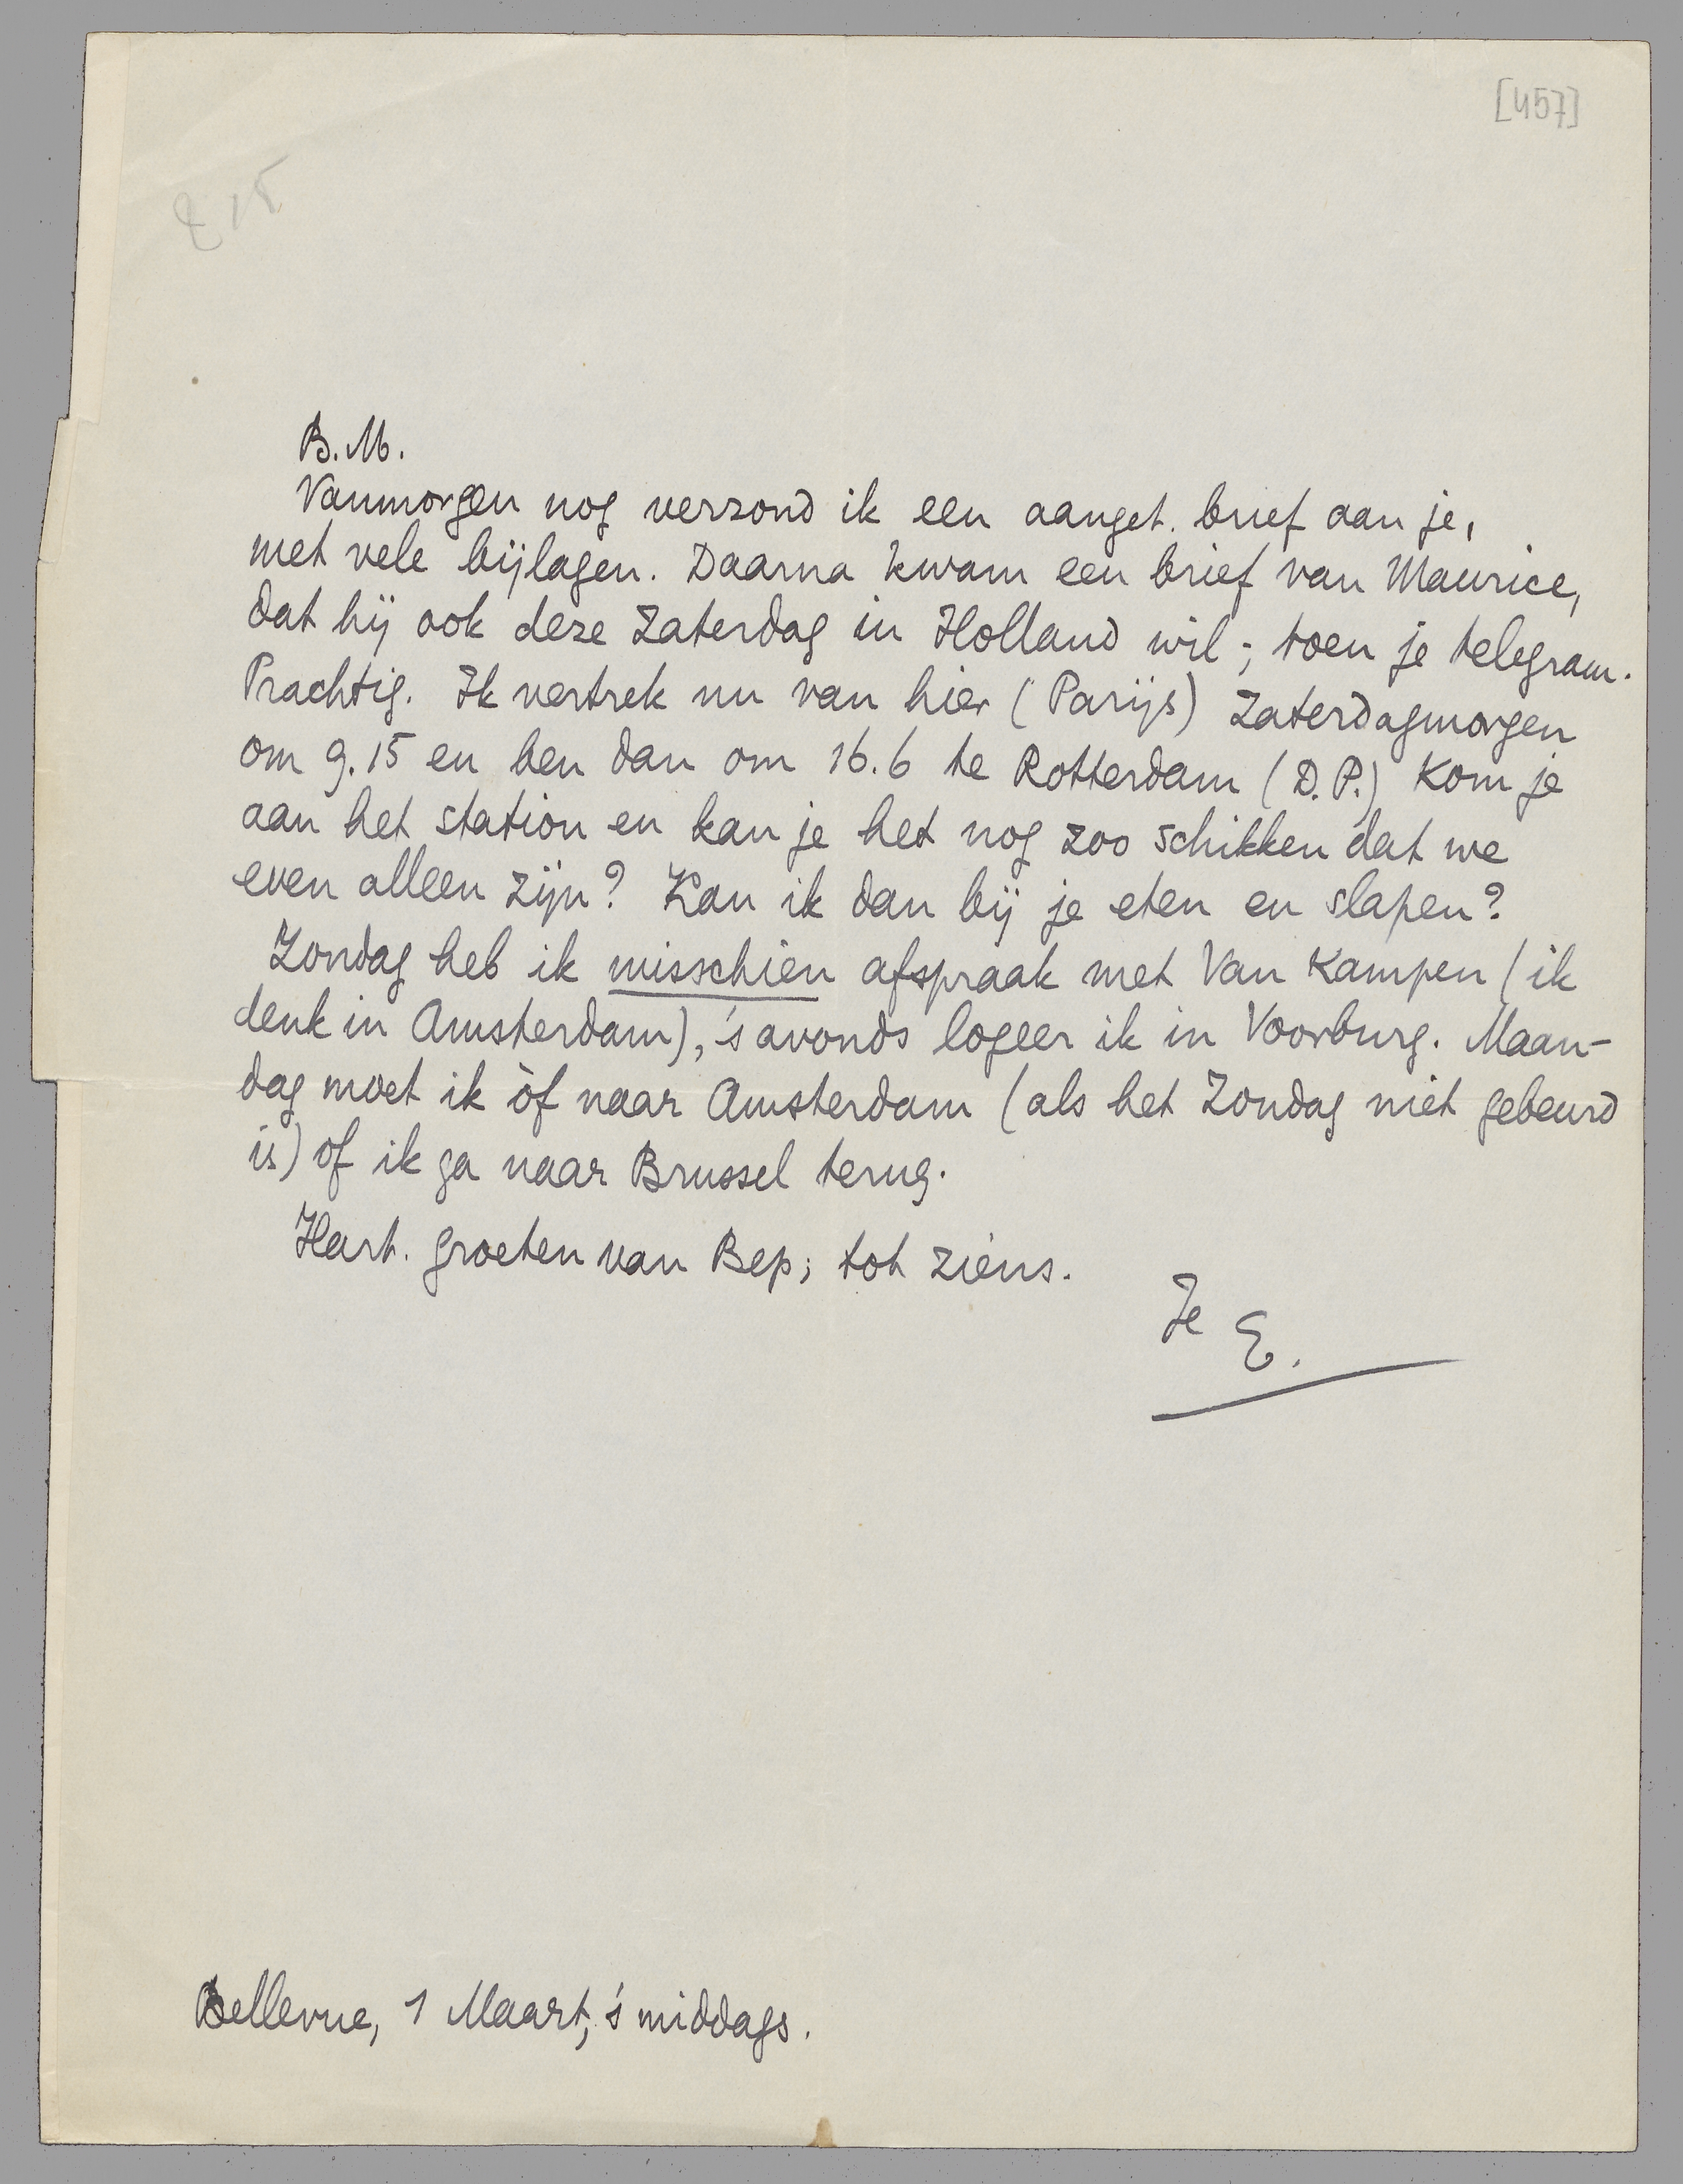 [457]
B.M.
Vanmorgen nog verzond ik een aanget. brief aan je,
met vele bijlagen. Daarna kwam een brief van Maurice,
dat hij ook deze Zaterdag in Holland wil -; toen je telegram.
Prachtig. Ik vertrek nu van hier (Parijs) Zaterdagmorgen
om 9.15 en ben dan om 16.6 te Rotterdam (D.P.) Kom je
aan het station en kan je het nog zoo schikken dat we
even alleen zijn? Kan ik dan bij je eten en slapen?
Zondag heb ik misschien afspraak met Van Kampen (ik
denk in Amsterdam), 's avonds logeer ik in Voorburg. Maan-
dag moet ik òf naar Amsterdam (als het Zondag niet gebeurd
is) òf ik ga naar Brussel terug.
Hart. groeten van Bep; tot ziens.
Je E.
Bellevue, 1 Maart, 's middags.